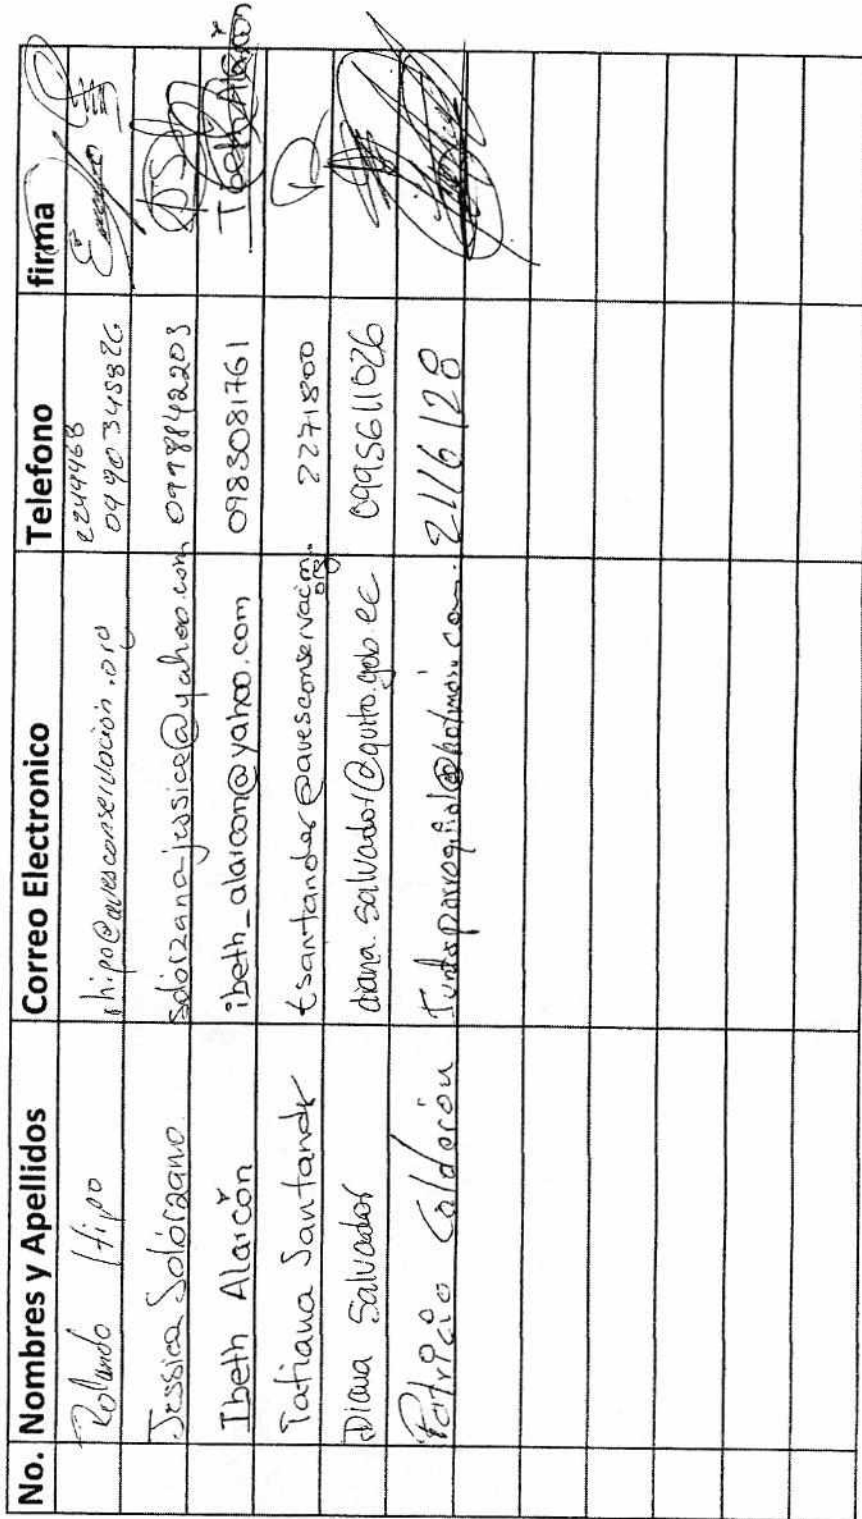 No. Nombres y Apellidos Correo Electronico Telefono firma
Rolando Hipo rhipo@avesconservacion.org 2244463
Jessica Solórzano solorzanojessica@yahoo.com 0998842203
Ibeth Alarcón ibeth_alarcon@yahoo.com 0983081761 Ibeth Alarcón
Tatiana Santander tsantander@avesconservacion.org 2271800
Diana Salvador diana.salvador@quito.gob.ec 0995611026
Patricio Calderón 2116128